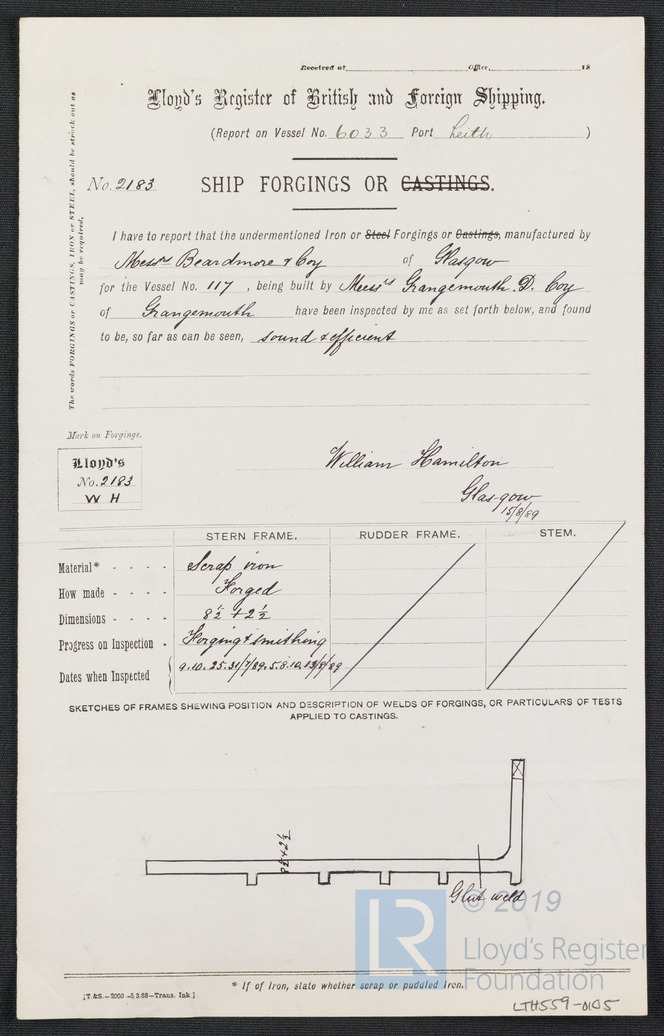 Received at Office, 18
Lloyd's Register of British and Foreign Shipping.
(Report on Vessel No. 6033 Port Leith )
No. 2183 SHIP FORGINGS OR CASTINGS.
The words FORGINGS or CASTINGS, IRON or STEEL, should be struck out as
may be required.
I have to report that the undermentioned Iron or Steel Forgings or Castings, manufactured by
Messrs Beardmore & Coy of Glasgow
for the Vessel No. 117, being built by Messrs Grangemouth D. Coy
of Grangemouth have been inspected by me as set forth below, and found
to be, so far as can be seen, sound & efficient
Mark on Forgings.
Lloyd's
No. 2183
W H
William Hamilton
Glasgow
15/8/89
STERN FRAME. RUDDER FRAME. STEM.
Material* - - - - Scrap iron
How made - - - - Forged
Dimensions - - - - 8½ + 2½
Progress on Inspection - Forging & smithing
Dates when Inspected 9.10.25.31/7/89.5.8.10.13/8/89
SKETCHES OF FRAMES SHEWING POSITION AND DESCRIPTION OF WELDS OF FORGINGS, OR PARTICULARS OF TESTS
APPLIED TO CASTINGS.
8½ x 2½
Glut weld
© 2019
LR
Lloyd's Register
Foundation
* If of Iron, state whether scrap or puddled Iron.
[T.&S.—2000—5.3.88—Trans. Ink.]
LTH559-0105